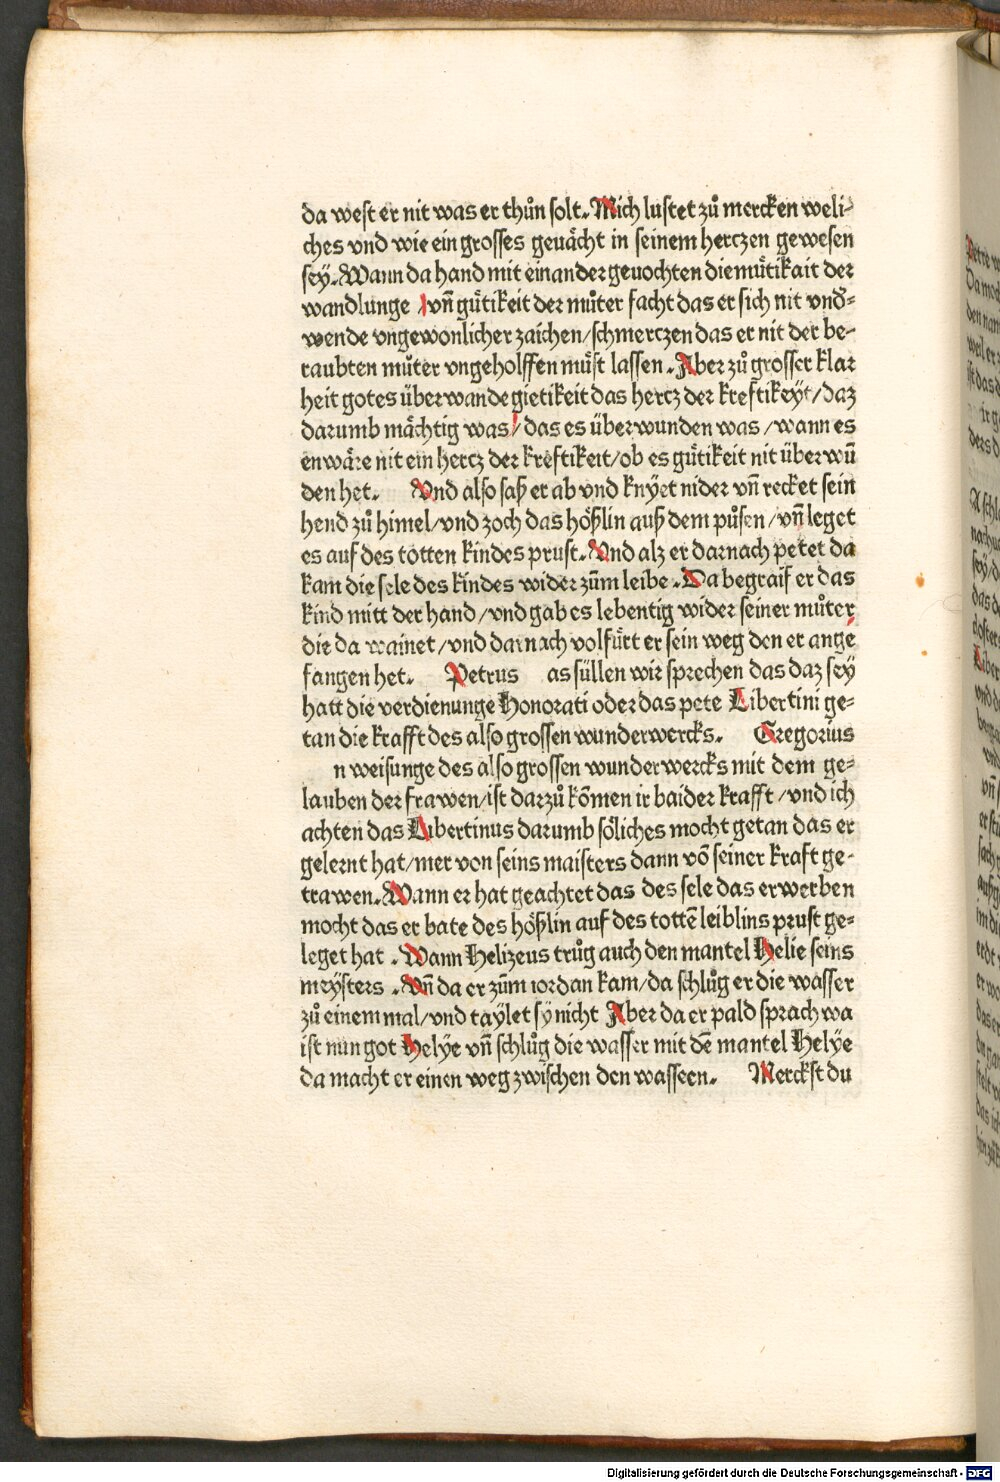 da west er nit was er thůn solt. Mich lustet zů mercken weli-
ches vnd wie ein grosses geuächt in seinem herczen gewesen
seÿ. Wann da hand mit einander geuochten die mütikait der
wandlunge / vñ gütikeit der můter facht das er sich nit vnd᷑=
wende vngewonlicher zaichen / schmerczen das er nit der be-
raubten můter vngeholffen můst lassen. Aber zů grosser klar
heit gotes überwande gietikeit das hercz der kreftikeyt / daz
darumb mächtig was / das es überwunden was / wann es
enwäre nit ein hercz der kreftikeit / ob es gütikeit nit überwū
den het. Vnd also saß er ab vnd knÿet nider vñ recket sein
hend zů himel / vnd zoch das hößlin auß dem půsen / vñ leget
es auf des totten kindes prust. Vnd alz er darnach petet da
kam die sele des kindes wider zům leibe. Da begraif er das
kind mitt der hand / vnd gab es lebentig wider seiner můter
die da wainet / vnd darnach volfürt er sein weg den er ange
fangen het. Petrus as süllen wir sprechen das daz seÿ
hatt die verdienunge Honorati oder das pete Libertini ge=
tan die krafft des also grossen wunderwercks. Gregorius
n weisunge des also grossen wunderwercks mit dem ge=
lauben der frawen / ist darzů kōmen ir baider krafft / vnd ich
achten das Libertinus darumb söliches mocht getan das er
gelernt hat / mer von seins maisters dann vō seiner kraft ge-
trawen. Wann er hat geachtet das des sele das erwerben
mocht das er bate des hößlin auf des tottē leiblins prust ge=
leget hat. Wann Helizeus trůg auch den mantel Helie seins
meÿsters. Vñ da er zům iordan kam / da schlůg er die wasser
zů einem mal / vnd taÿlet sÿ nicht Aber da er pald sprach wa
ist nun got Helÿe vñ schlůg die wasser mit dē mantel Helÿe
da macht er einen weg zwischen den wasseen. Merckst du
Digitalisierung gefördert durch die Deutsche Forschungsgemeinschaft - DFG